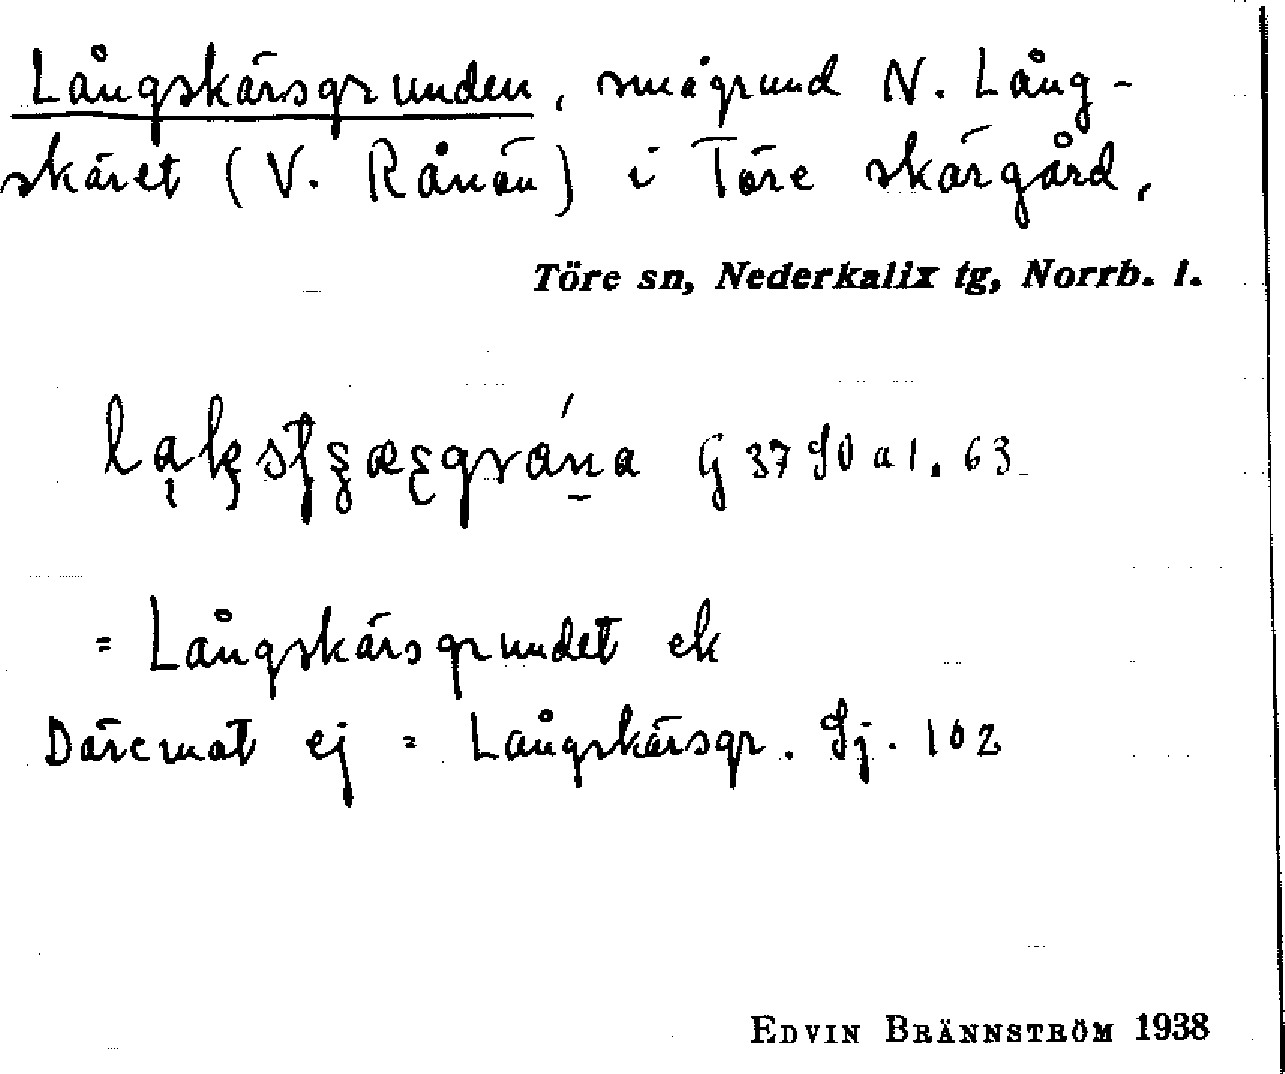 Långskärsgrunden, smågrund N. Lång-
skäret (V. Rånön) i Töre skärgård,
Töre sn, Nederkalix tg, Norrb. l.
G 37 90 a 1. 63
= Långskärsgrundet ek
Däremot ej = Långskärsgr. Sj. 102
EDVIN BRÄNNSTRÖM 1938